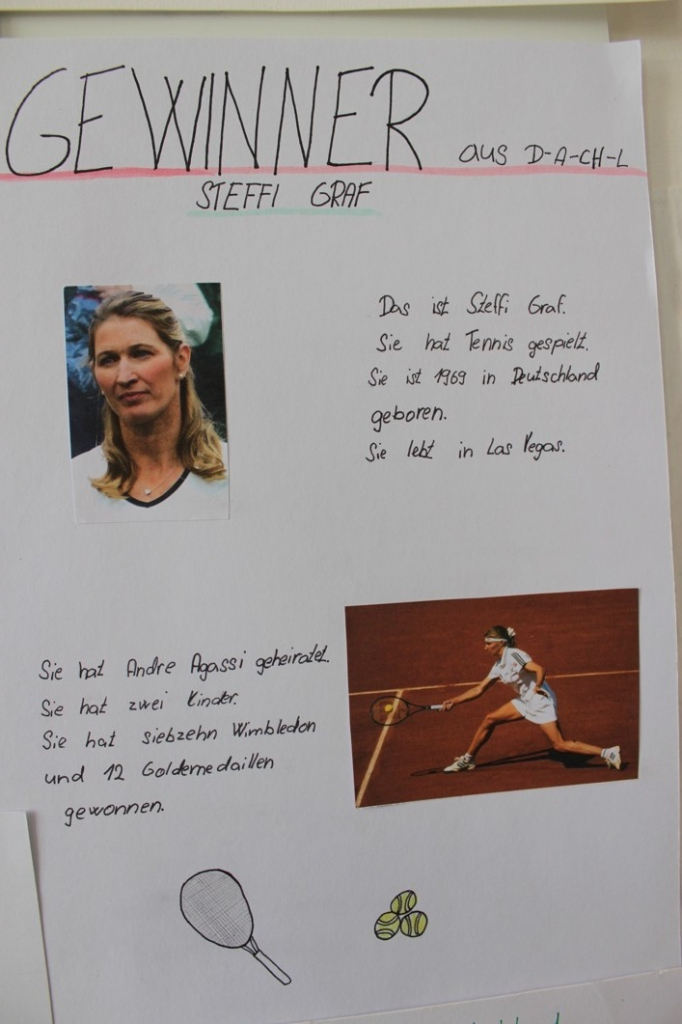 GEWINNER aus D-A-CH-L
STEFFI GRAF
Das ist Steffi Graf.
Sie hat Tennis gespielt.
Sie ist 1969 in Deutschland
geboren.
Sie lebt in Las Vegas.
Sie hat Andre Agassi geheiratet.
Sie hat zwei Kinder.
Sie hat siebzehn Wimbledon
und 12 Goldemedaillen
gewonnen.